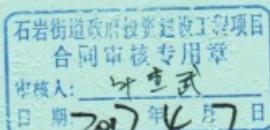 石岩街道政府投资建设工程项目
合同审核专用章
审核人: 叶查武
日 期 2017 年 4 月 7 日